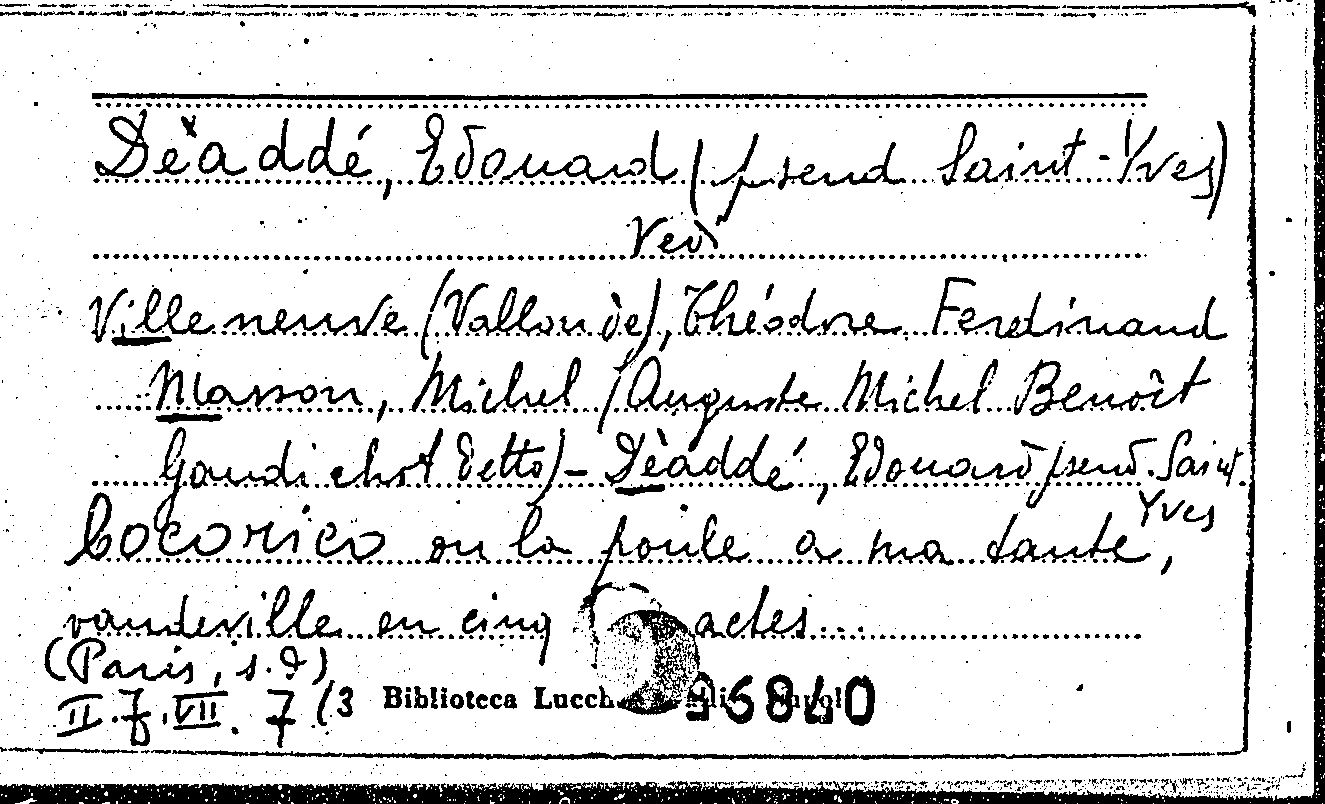 Dèaddé, Edouard (pseud Saint-Yves)
Ved
Villeneuve (Vallou de), Théodore Ferdinand
Masson, Michel (Auguste Michel Benoît
Gaudichot detto) - Dèaddé, Edouard pseud. Saint
Yves
Cocorico ou la poule a ma tante,
vaudeville en cinq actes...
(Paris, s.d)
II.7.VII.7(3 Biblioteca Lucch 96840